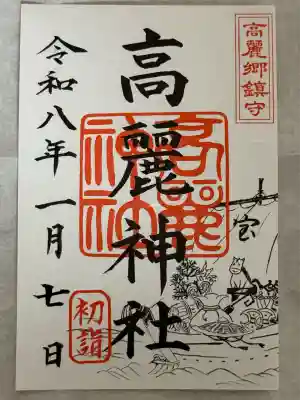 高麗郷鎮守
高麗神社
高麗神社
令和八年一月七日
初詣
宝